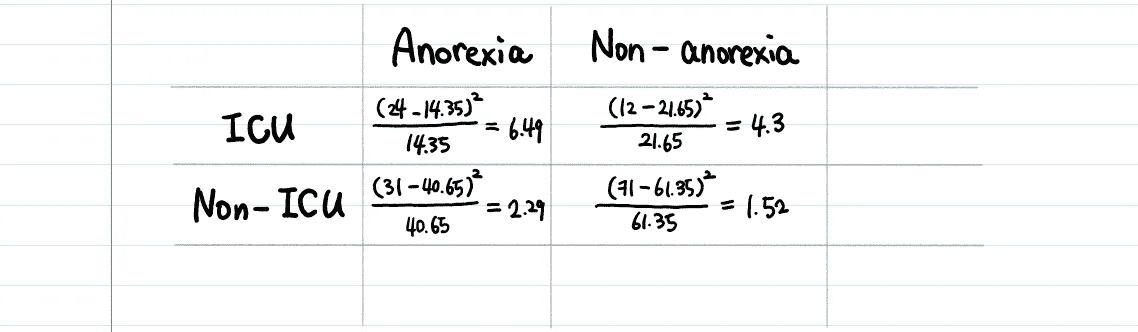 Anorexia Non-anorexia
ICU (24-14.35)²/14.35 = 6.49 (12-21.65)²/21.65 = 4.3
Non-ICU (31-40.65)²/40.65 = 2.29 (71-61.35)²/61.35 = 1.52